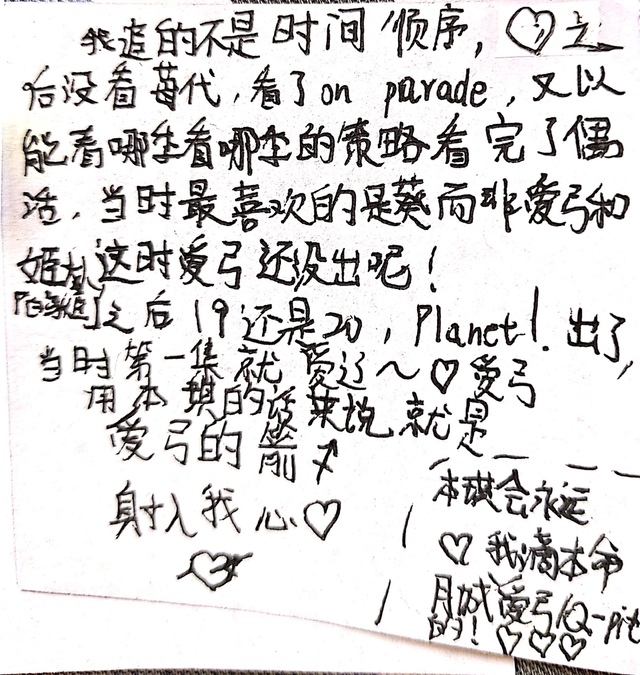 我追的不是时间顺序，♡之
后没看莓代，看了on parade，又以
能看哪生看哪生的策略看完了偶
活，当时最喜欢的是葵而非爱弓和
姬 这时爱弓还没出呢！
之后19还是20，Planet！出了，
当时第一集就爱过～♡爱弓
用本姬的话来说就是
爱弓的箭
身寸入我心♡
本 会永远
♡我滴本命
月城爱弓/Q-pit
的！♡♡♡